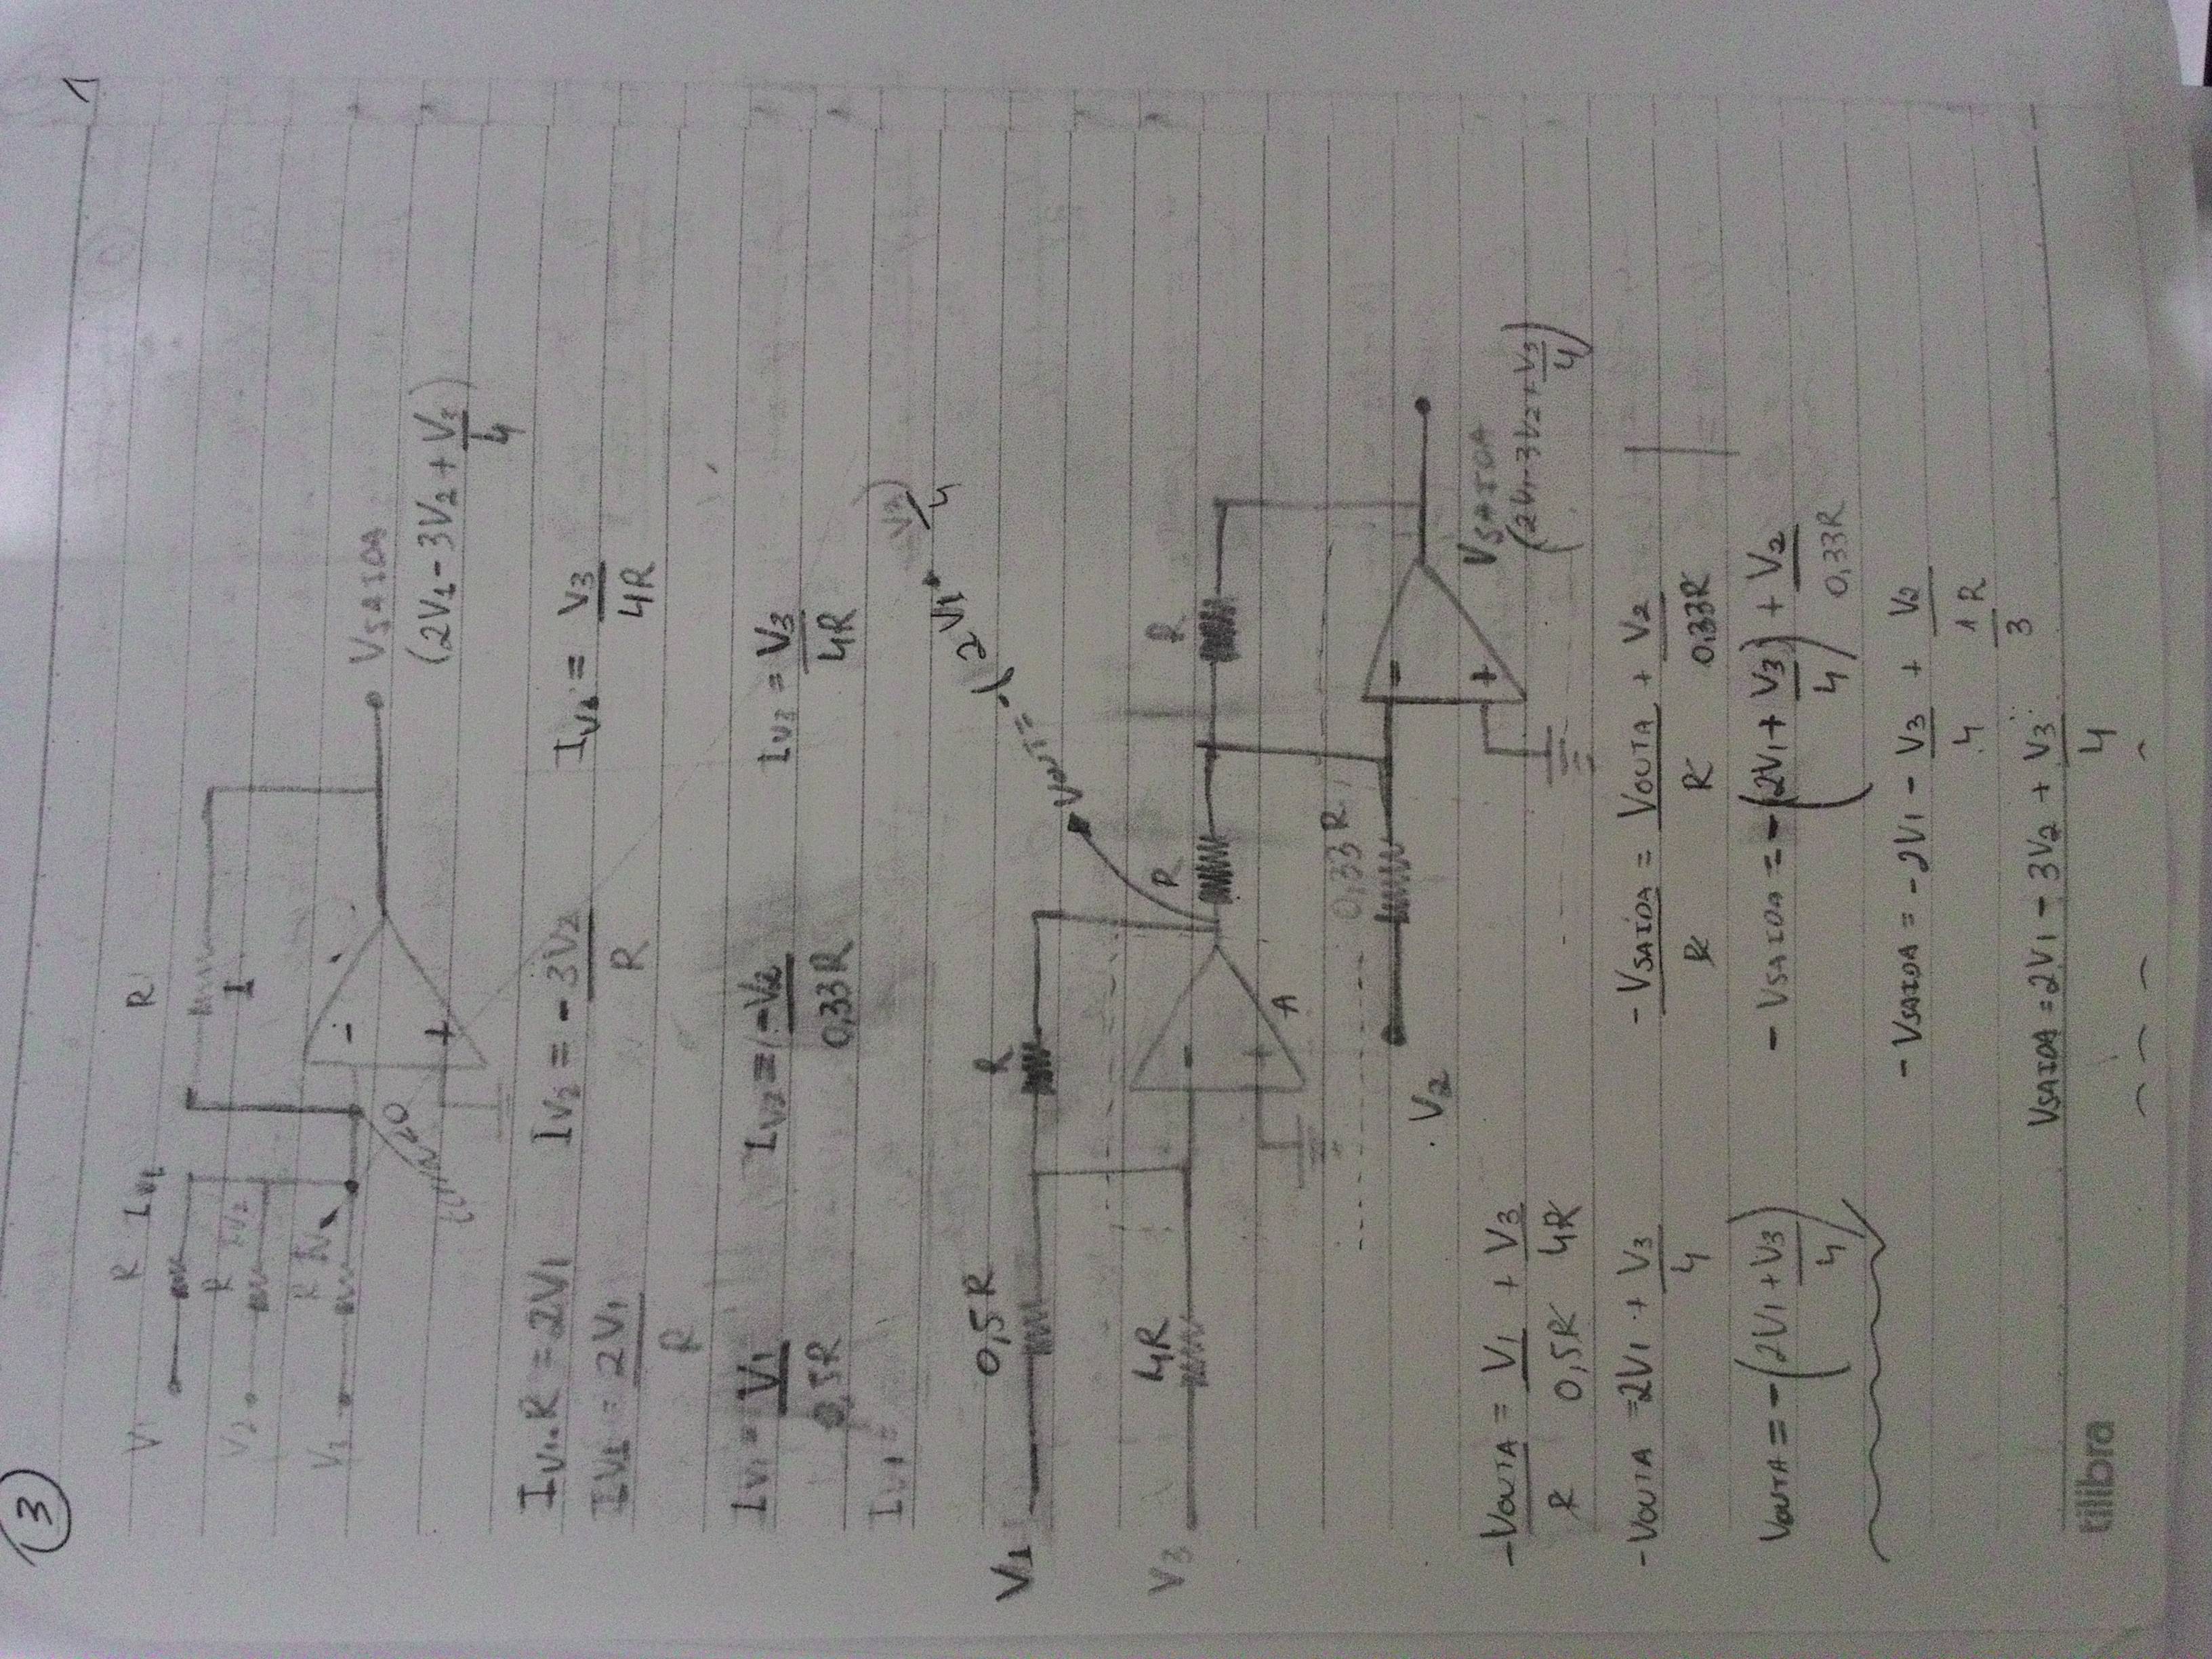 3
1
R Iv1 R
V1
R Iv2 I
V2
R
V3
-
+
VSAIDA
(2V1 - 3V2 + V3/4)
Iv1.R = 2V1 Iv2 = - 3V2/R Iv3 = V3/4R
Iv1 = 2V1/R
Iv1 = V1/0,5R Iv2 = -V2/0,33R Iv3 = V3/4R
Iv1 =
0,5R R
V1
4R
V3
-
+
A
R R
0,33R
V2
-
+
VSAIDA
(2V1 - 3V2 + V3/4)
-VOUTA/R = V1/0,5R + V3/4R
-VOUTA = 2V1 + V3/4
VOUTA = -(2V1 + V3/4)
-VSAIDA/R = VOUTA/R + V2/0,33R
-VSAIDA = -(2V1 + V3/4) + V2/0,33R
-VSAIDA = -2V1 - V3/4 + V2/1R/3
VSAIDA = 2V1 - 3V2 + V3/4
tilibra